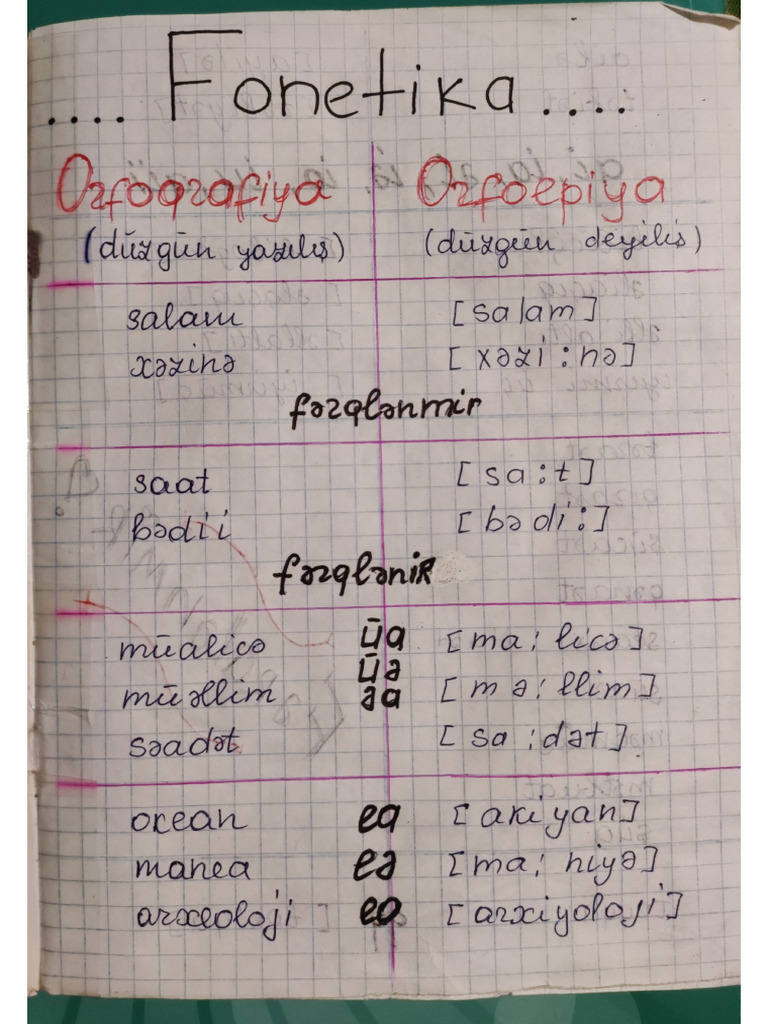 .... Fonetika ....
Orfoqrafiya Orfoepiya
(düzgün yazılış) (düzgün deyiliş)
salam [salam]
xəzinə [xəzi:nə]
fərqlənmir
saat [sa:t]
bədii [bədi:]
fərqlənir
müalicə üa [ma:licə]
üə
müəllim əa [mə:llim]
səadət [sa:dət]
okean ea [akiyan]
manea eə [ma:niyə]
arxeoloji eo [arxiyoloji]